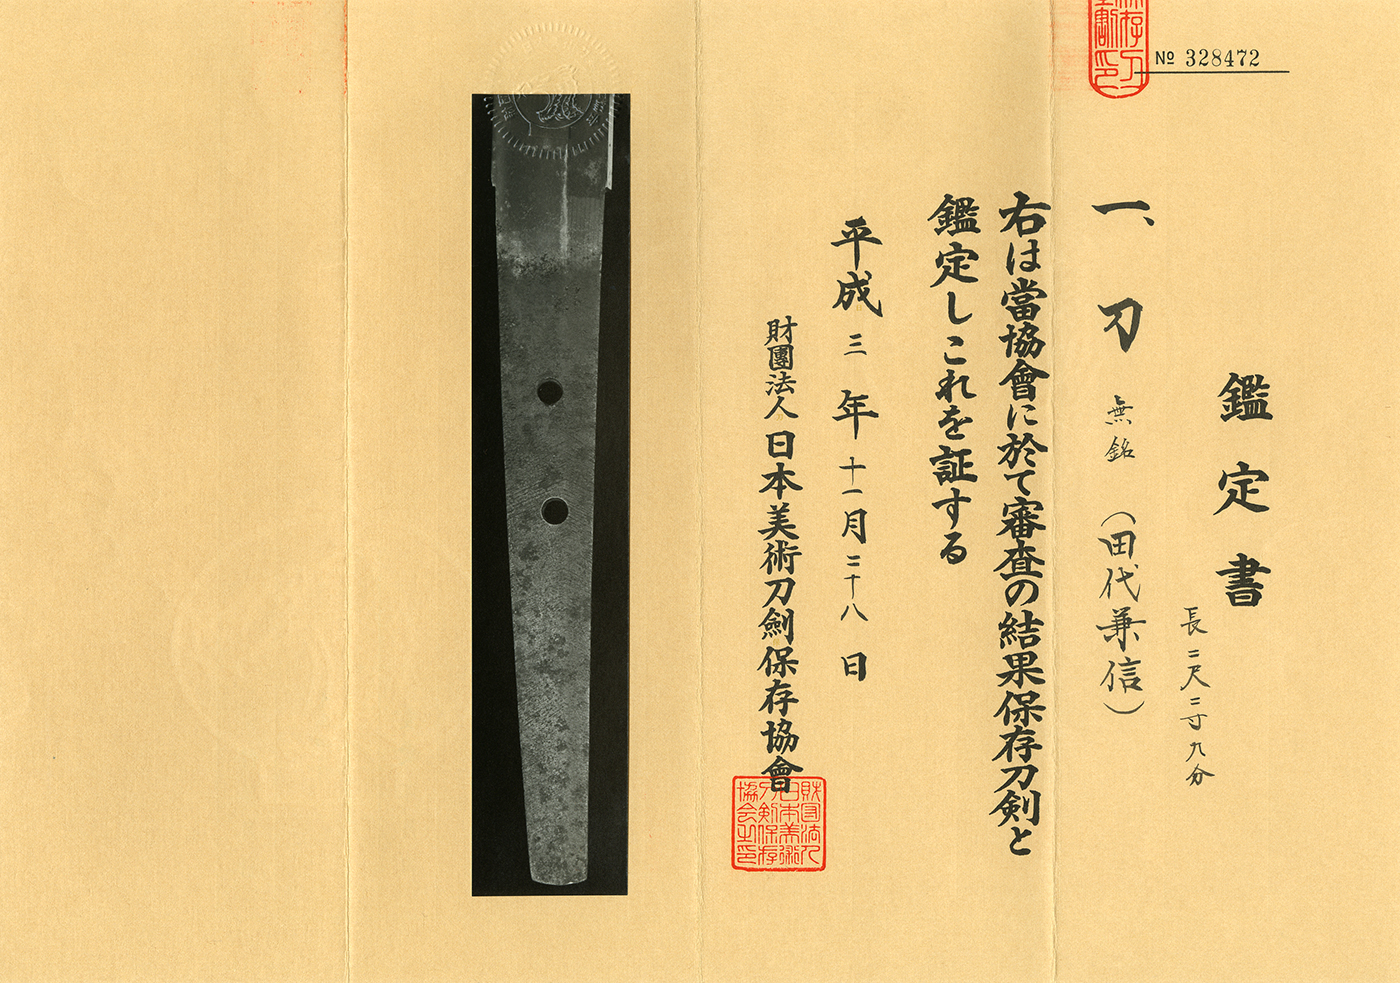 No 328472
鑑定書
長二尺二寸九分
一、刀 無銘 (田代兼信)
右は當協會に於て審査の結果保存刀剣と
鑑定しこれを証する
平成三年十一月二十八日
財團法人日本美術刀劍保存協會
財団法人
日本美術
刀剣保存
協会之印